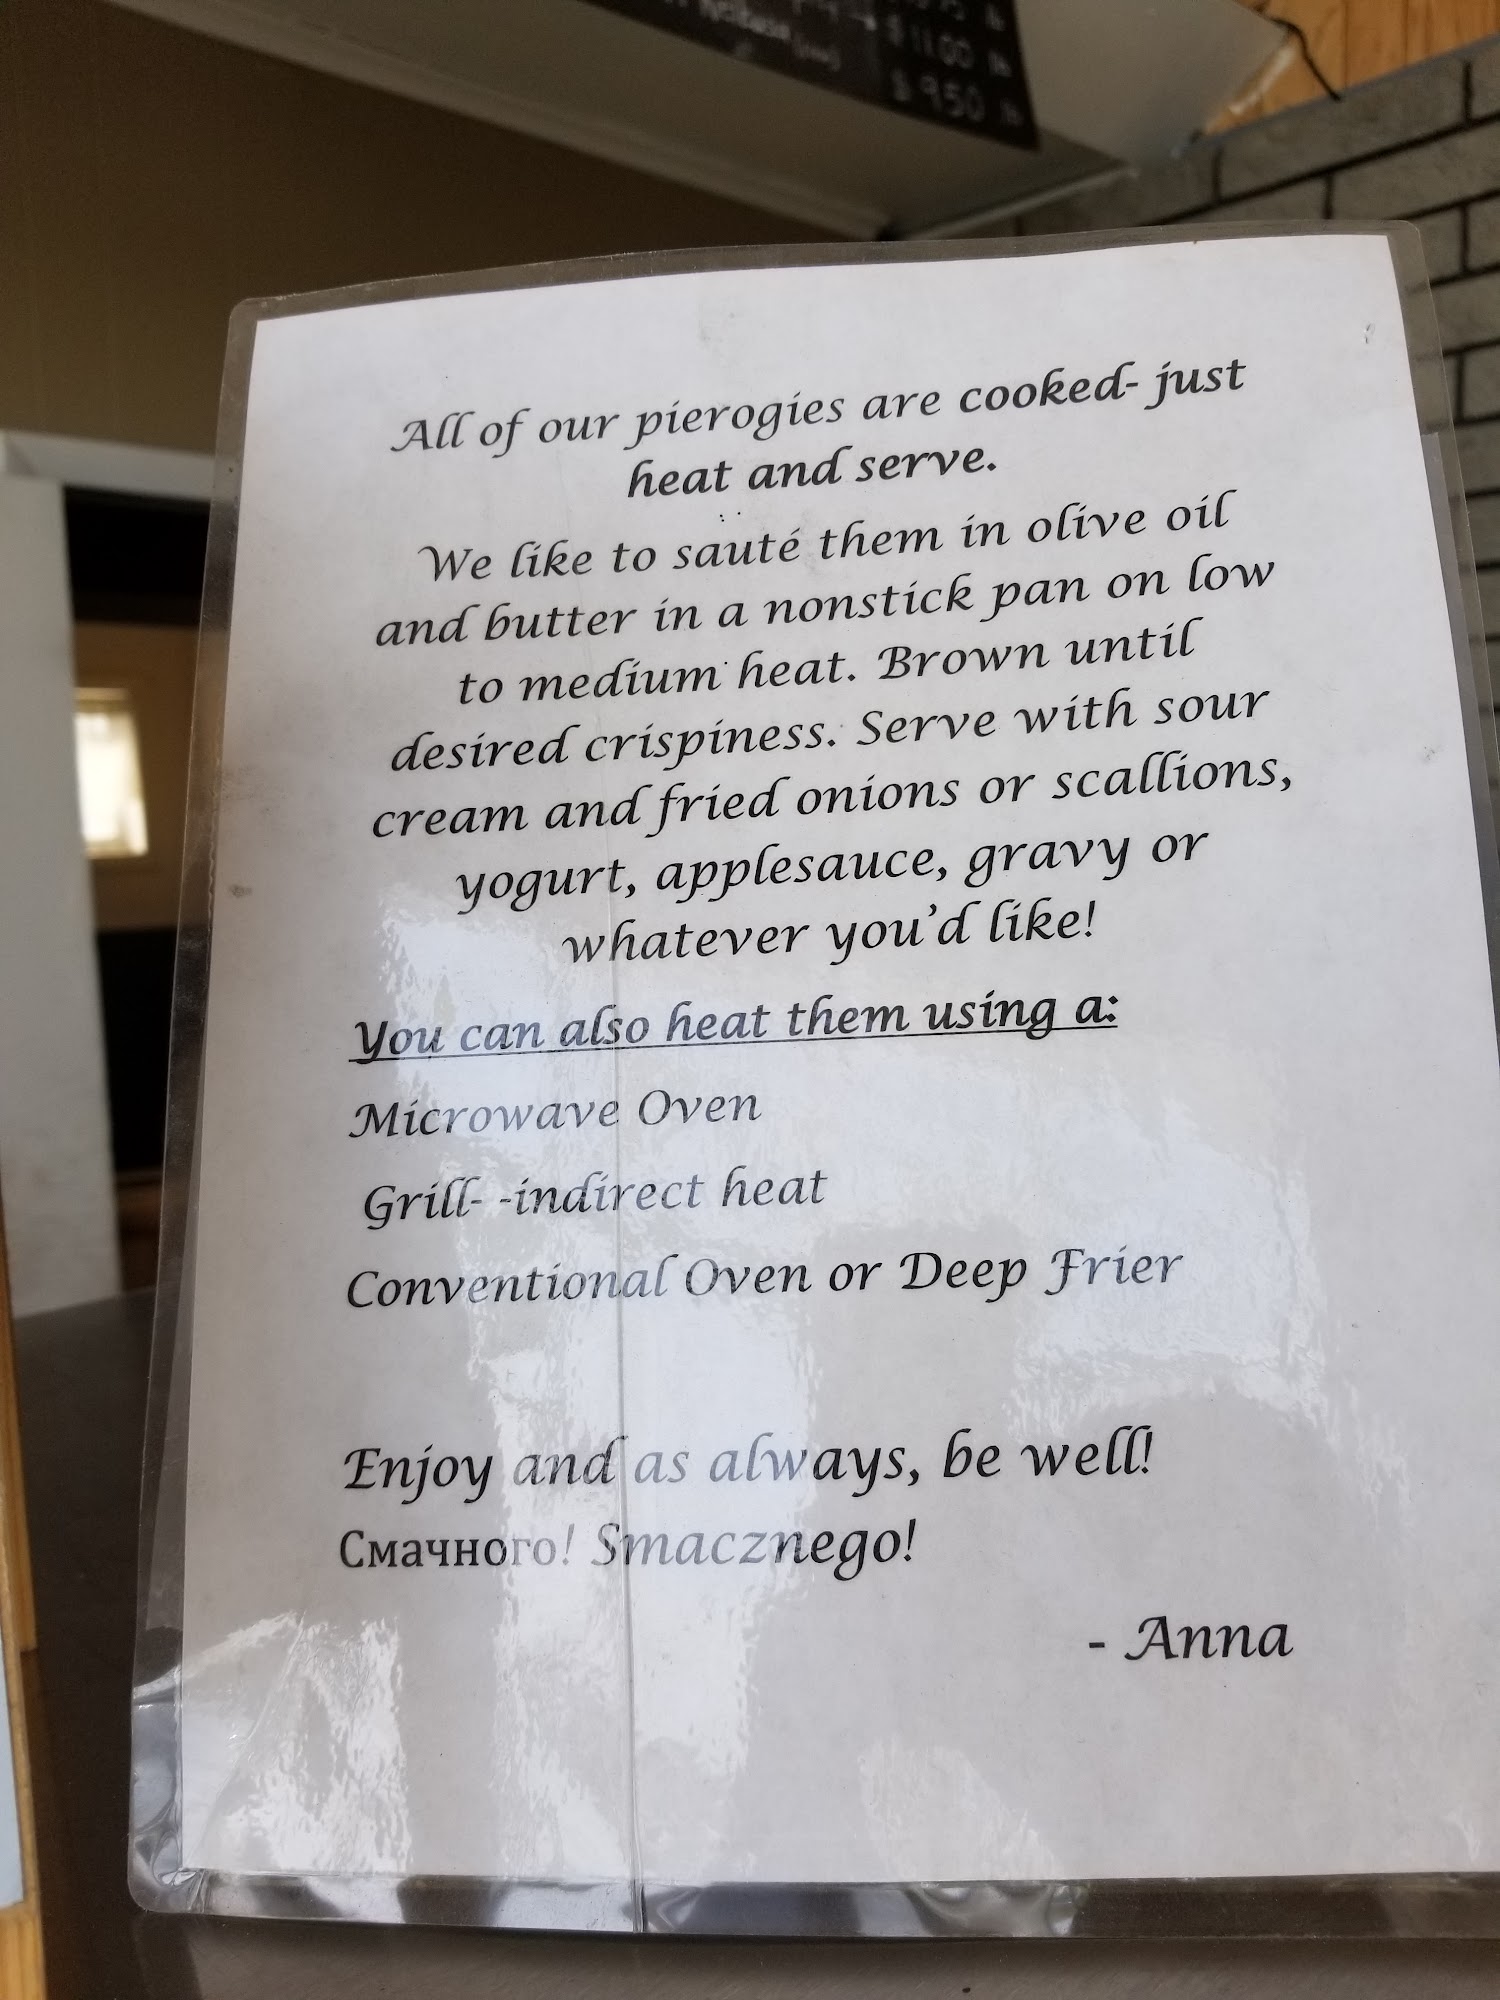 Kielbasa
$11.00 lb
$9.50 lb
All of our pierogies are cooked- just
heat and serve.
We like to sauté them in olive oil
and butter in a nonstick pan on low
to medium heat. Brown until
desired crispiness. Serve with sour
cream and fried onions or scallions,
yogurt, applesauce, gravy or
whatever you'd like!
You can also heat them using a:
Microwave Oven
Grill- -indirect heat
Conventional Oven or Deep Frier
Enjoy and as always, be well!
Смачного! Smacznego!
- Anna